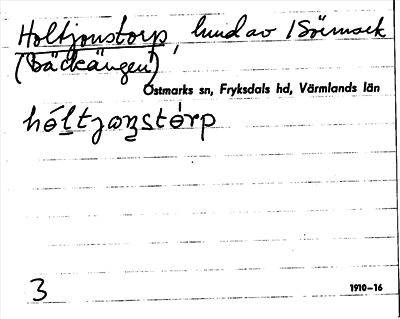 Holtjonstorp, lund av 1 Sörmark
(Bäckängen)
Östmarks sn, Fryksdals hd, Värmlands län
hóltjonstórp
3
1910-16